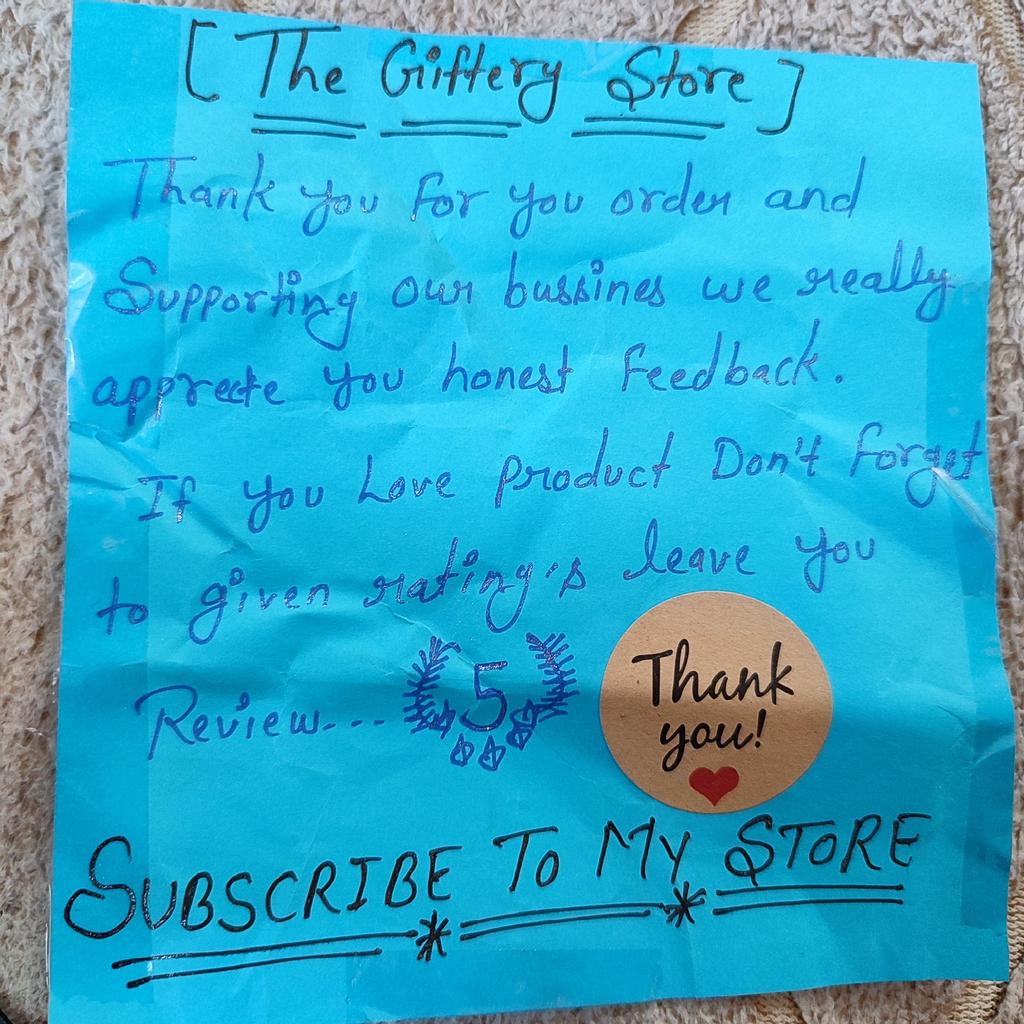 [The Giftery Store]
Thank you for you order and
Supporting our bussines we really
apprecte you honest feedback.
If you Love product Don't forget
to given rating's leave you
Review... 5
Thank
you!
SUBSCRIBE TO MY STORE